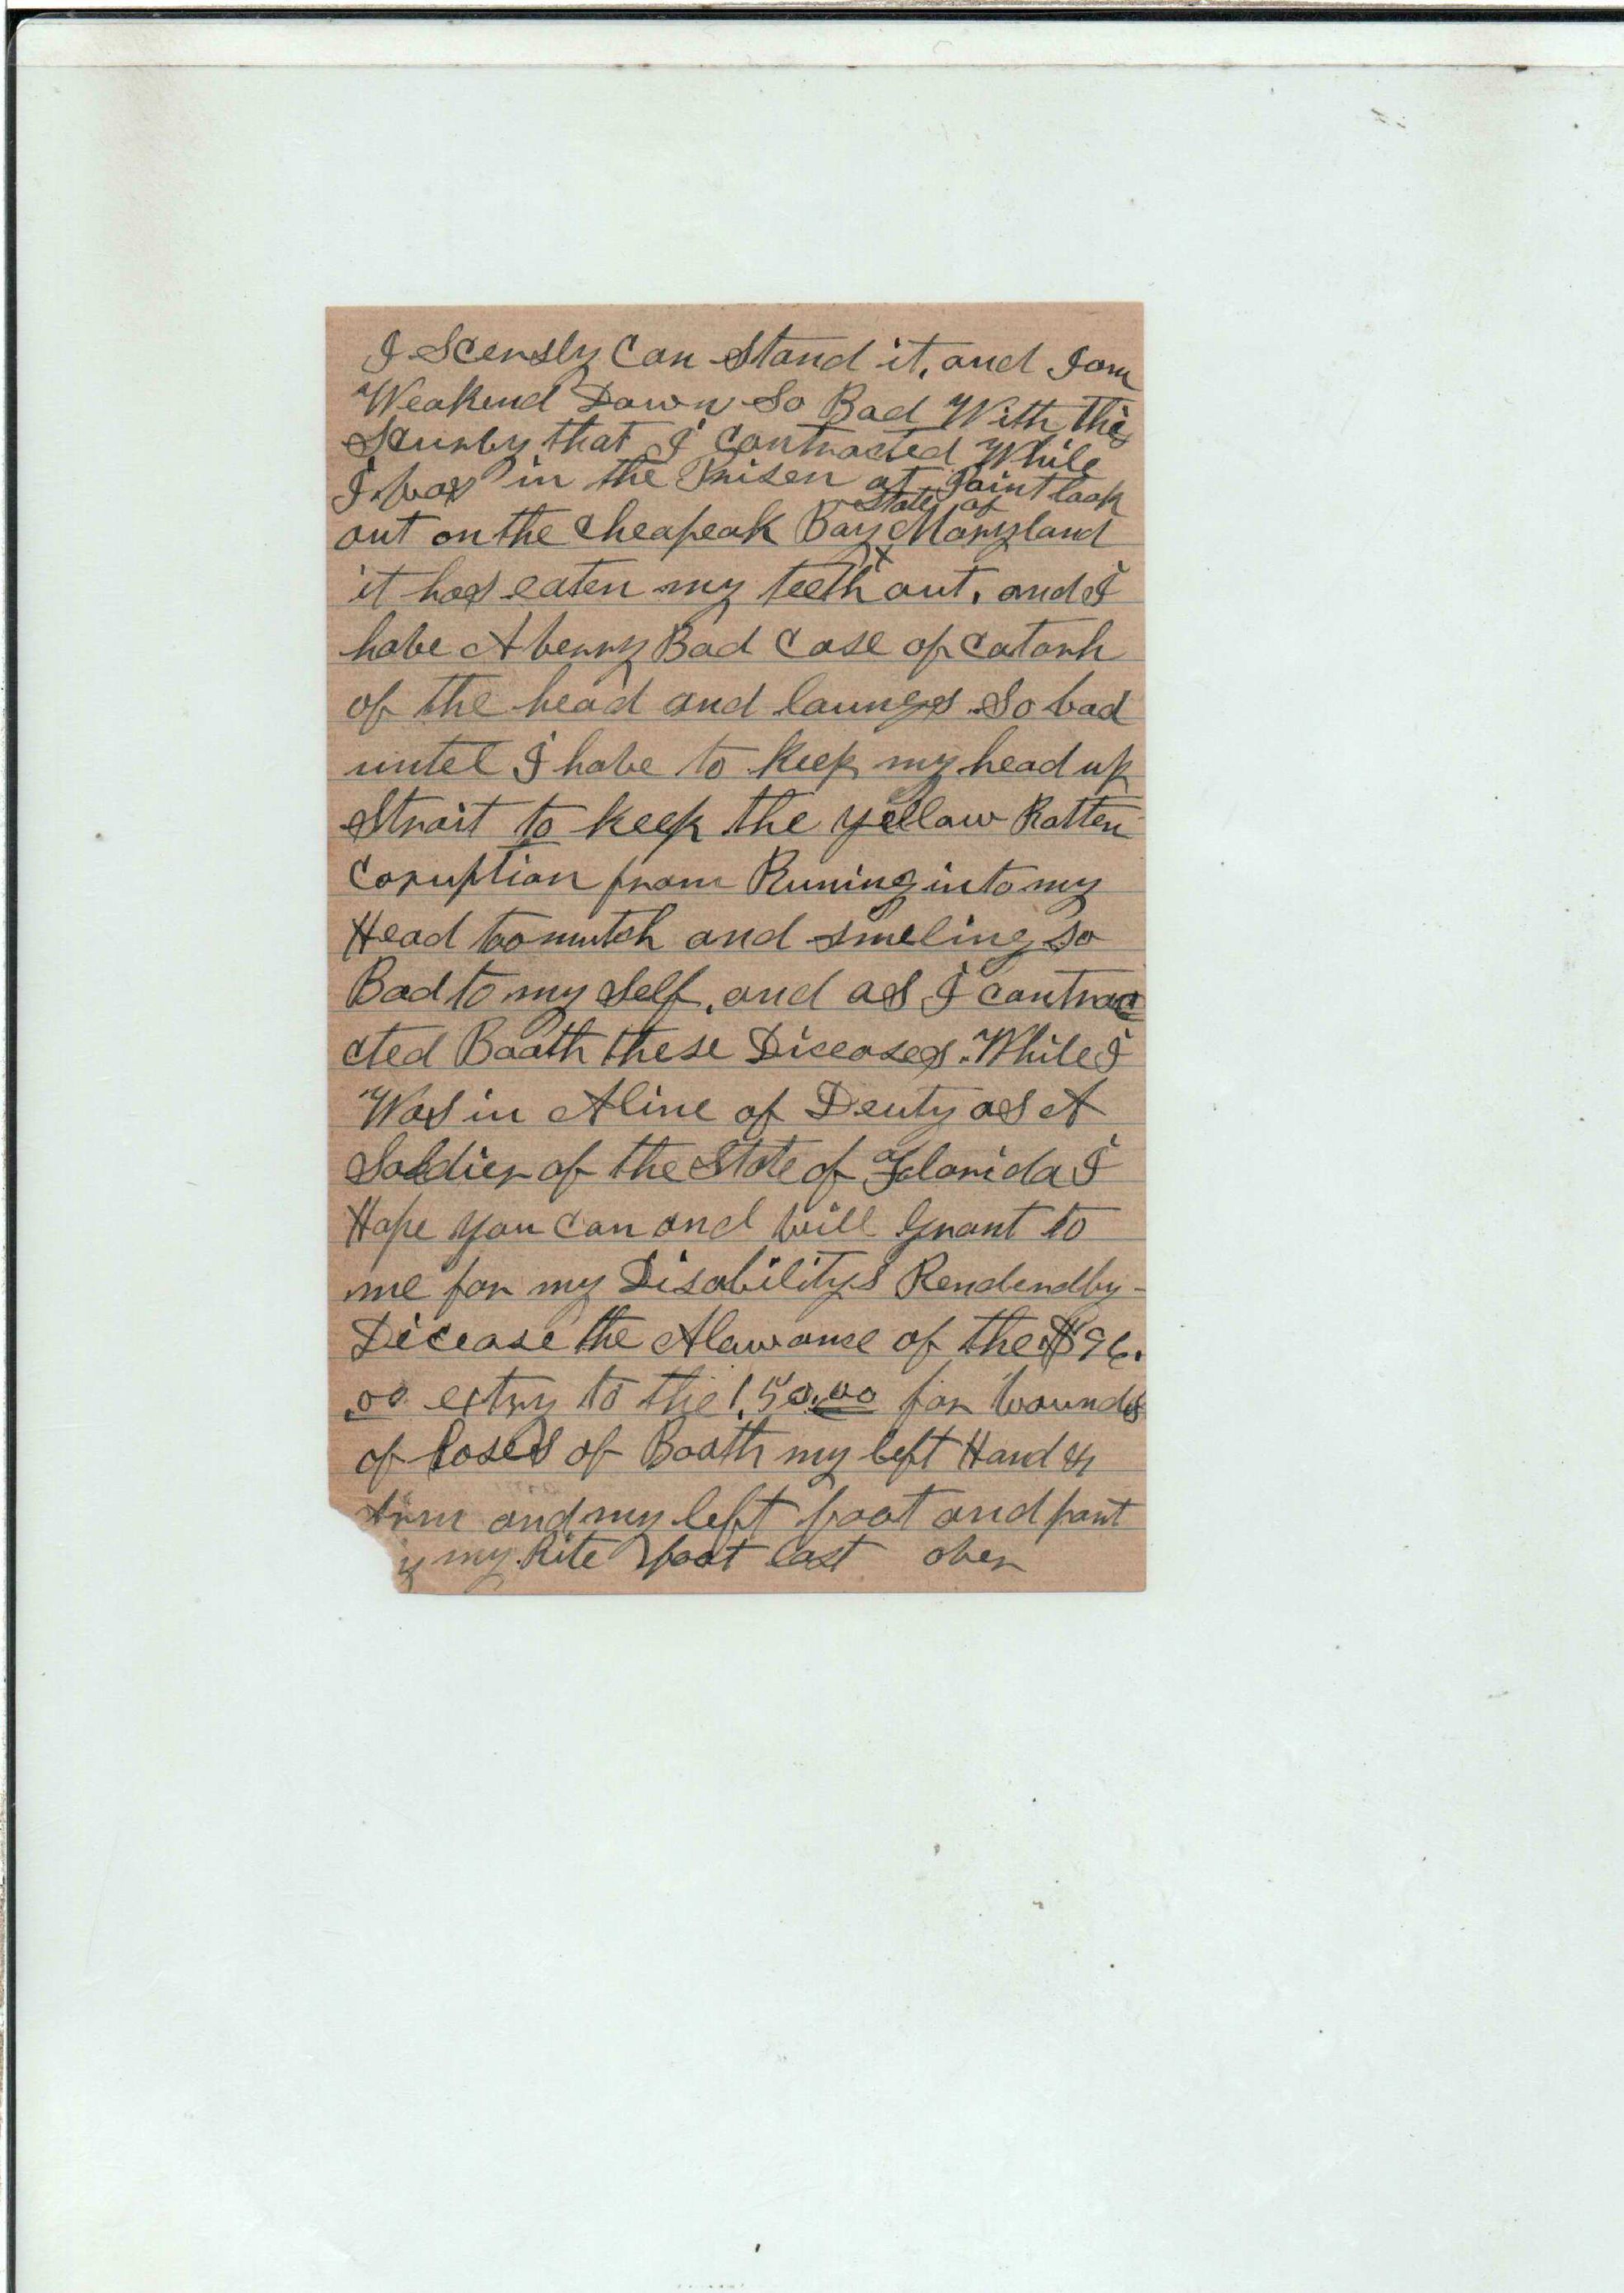 I Scersly Can Stand it, and I am
Weakend Down So Bad With the
Scurvby that I contracted While
I was in the Prisen at Point look
State of
out on the Cheapeak Bay Maryland
x
it has eaten my teeth out, and I
habe A berry Bad Case of Catarh
of the head and launges So bad
untel I habe to Keep my head up
Strait to keep the yellow Rotten
Coruption from Runing into my
Head too mutch and smeling so
Bad to my self, and as I contrac
cted Booth these Diceases. While I
Was in A line of Deuty as A
Soldier of the State of Florida I
Hope you Can and will Grant to
me for my Disabilitys Renderd by -
Dicease the Alowance of the $96.
.00 extry to the 1.50.00 for Wounds
of Loses of Booth my left Hand &
Arm and my left foot and part
my Rite foot last ober